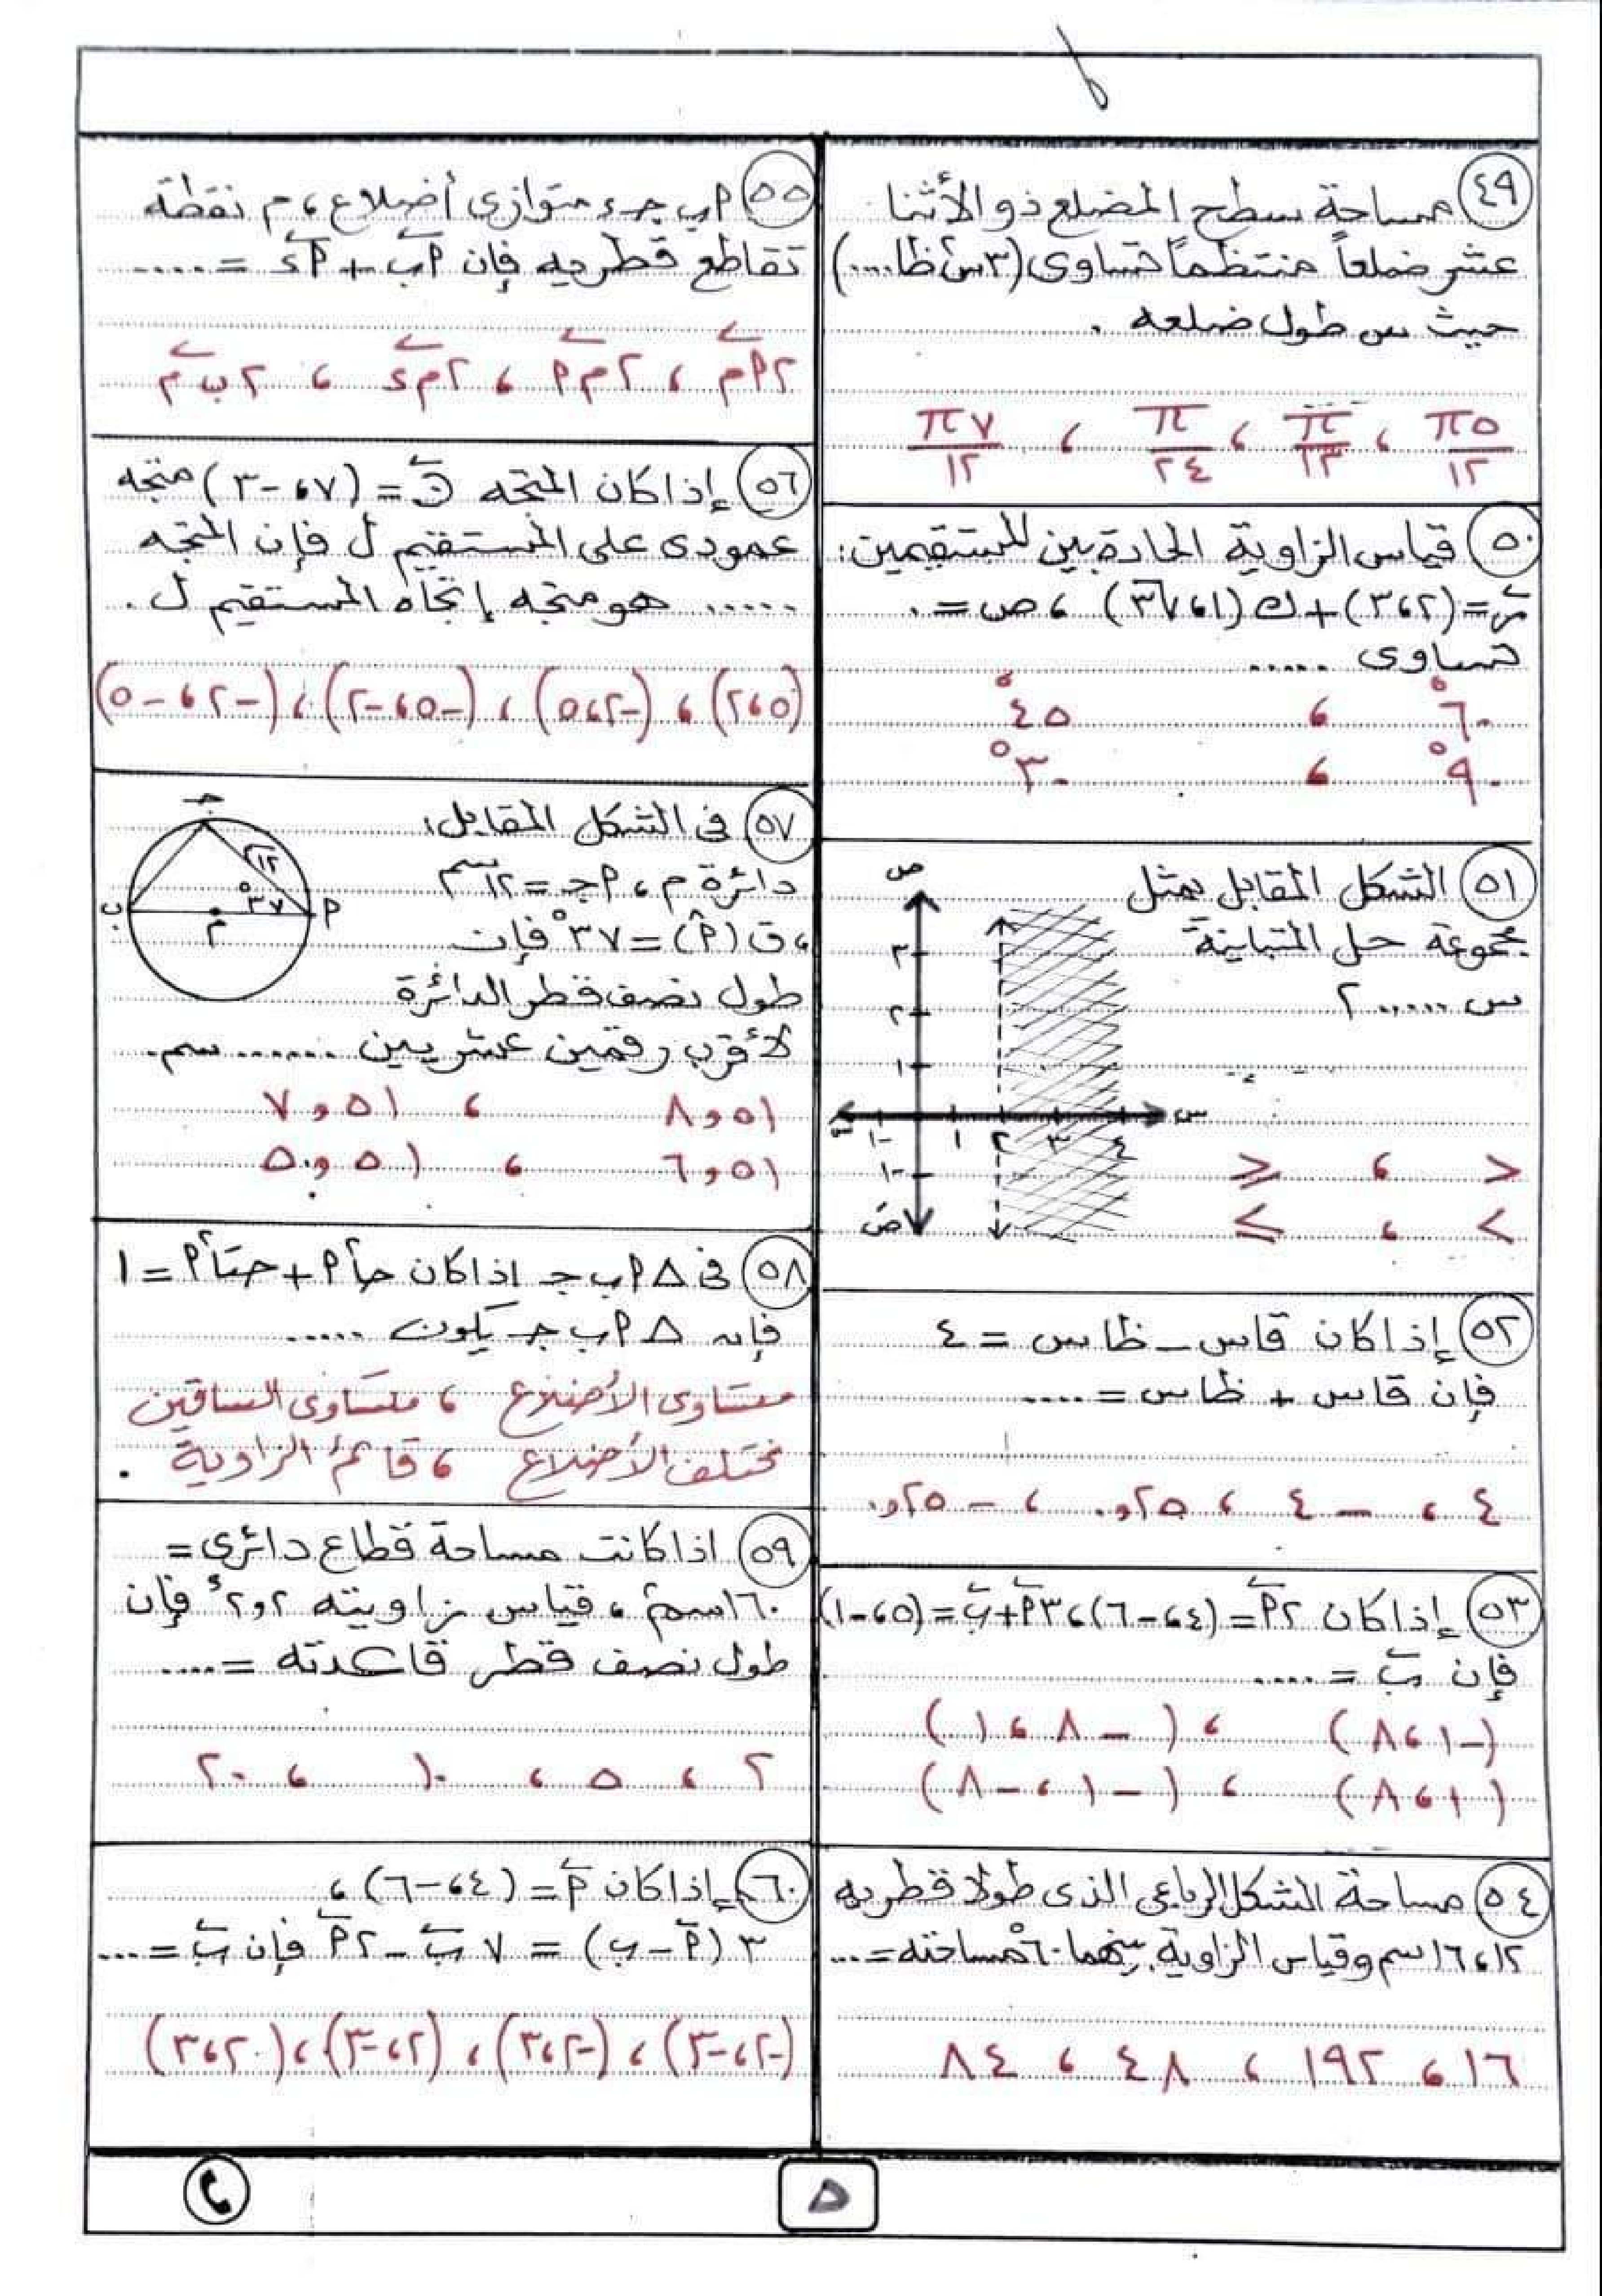 ٤٩ مساحة سطح المضلع ذو الأثنا
عشر ضلعاً منتظماً تساوى (٣س٢ ظا....)
حيث س طول ضلعه .
٥π/١٢ ، π/١٢ ، π/٢٤ ، ٧π/١٢
٥٠ قياس الزاوية الحادة بين المستقيمين :
ر = (٢،٣) + ك (١،√٣) ، ص = ٠
تساوى .....
٦٠° ، ٤٥°
٩٠° ، ٣٠°
٥١ الشكل المقابل يمثل
مجموعة حل المتباينة
س ..... ٢
< ، ≤
> ، ≥
ص
٣
٢
١
سَ -١ ١ ٢ ٣ ٤ س
-١
صَ
٥٢ إذا كان قاس - ظاس = ٤
فإن قاس + ظاس = ....
٤ ، -٤ ، ٠,٢٥ ، -٠,٢٥
٥٣ إذا كان ٢أ = (٤،-٦) ، ٣أ + ب = (٥،-١)
فإن ب = .....
(-١،٨) ، (-٨،١)
(١،٨) ، (-١،-٨)
٥٤ مساحة الشكل الرباعى الذى طولا قطريه
١٢،١٦سم وقياس الزاوية بينهما ٦٠° مساحته = ...
١٦ ، ١٩٢ ، ٤٨ ، ٨٤
٥٥ أ ب جـ ء متوازى أضلاع ، م نقطة
تقاطع قطريه فإن أب + أء = .....
٢أم ، ٢م أ ، ٢م ء ، ٢ب م
٥٦ إذا كان المتجه ن = (٧،-٣) متجه
عمودى على المستقيم ل فإن المتجه
..... هو متجه إتجاه المستقيم ل .
(٥،٢) ، (-٢،٥) ، (-٥،-٢) ، (-٢،-٥)
٥٧ فى الشكل المقابل :
دائرة م ، أجـ = ١٢سم
، ق (أ) = ٣٧° فإن
طول نصف قطر الدائرة
لأقرب رقمين عشريين ...... سم.
٨,٥١ ، ٧,٥١
٦,٥١ ، ٥,٥١
جـ
١٢
٣٧°
ب م أ
٥٨ فى Δ أ ب جـ اذا كان جا٢أ + جتا٢أ = ١
فإن Δ أ ب جـ يكون .....
متساوى الأضلاع ، متساوى الساقين
مختلف الأضلاع ، قائم الزاوية .
٥٩ اذا كانت مساحة قطاع دائرى =
١٦٠سم٢ ، قياس زاويته ٢,٢ء فإن
طول نصف قطر قاعدته = ....
٢ ، ٥ ، ١٠ ، ٢٠
٦٠ إذا كان أ = (٤،-٦) ،
٣ (أ - ب) = ٧ ب - ٢ أ فإن ب = ...
(-٢،-٣) ، (-٢،٣) ، (٢،-٣) ، (٢،٣)
٥